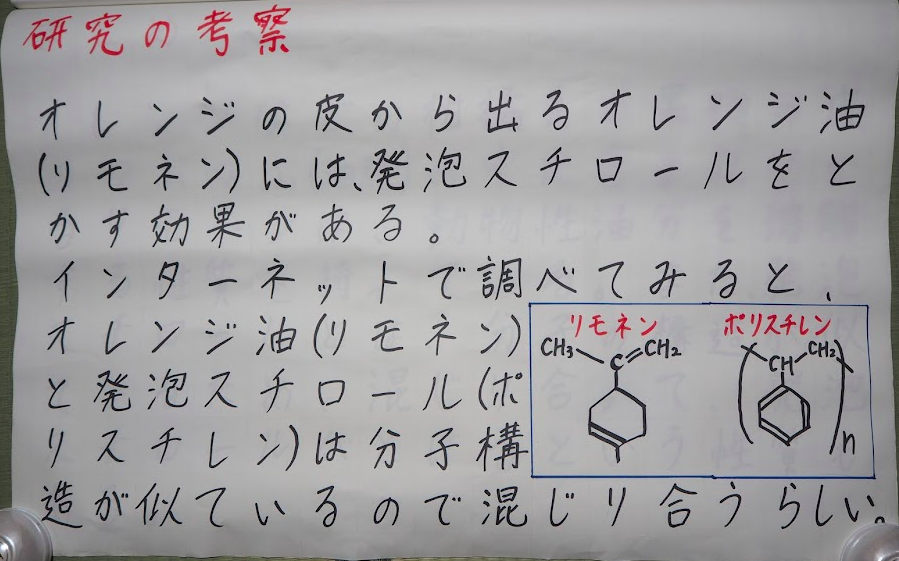 研究の考察
オレンジの皮から出るオレンジ油
(リモネン)には、発泡スチロールをと
かす効果がある。
インターネットで調べてみると、
オレンジ油(リモネン)
と発泡スチロール(ポ
リスチレン)は分子構
造が似ているので混じり合うらしい。
リモネン
CH₃ C=CH₂
ポリスチレン
CH CH₂
n